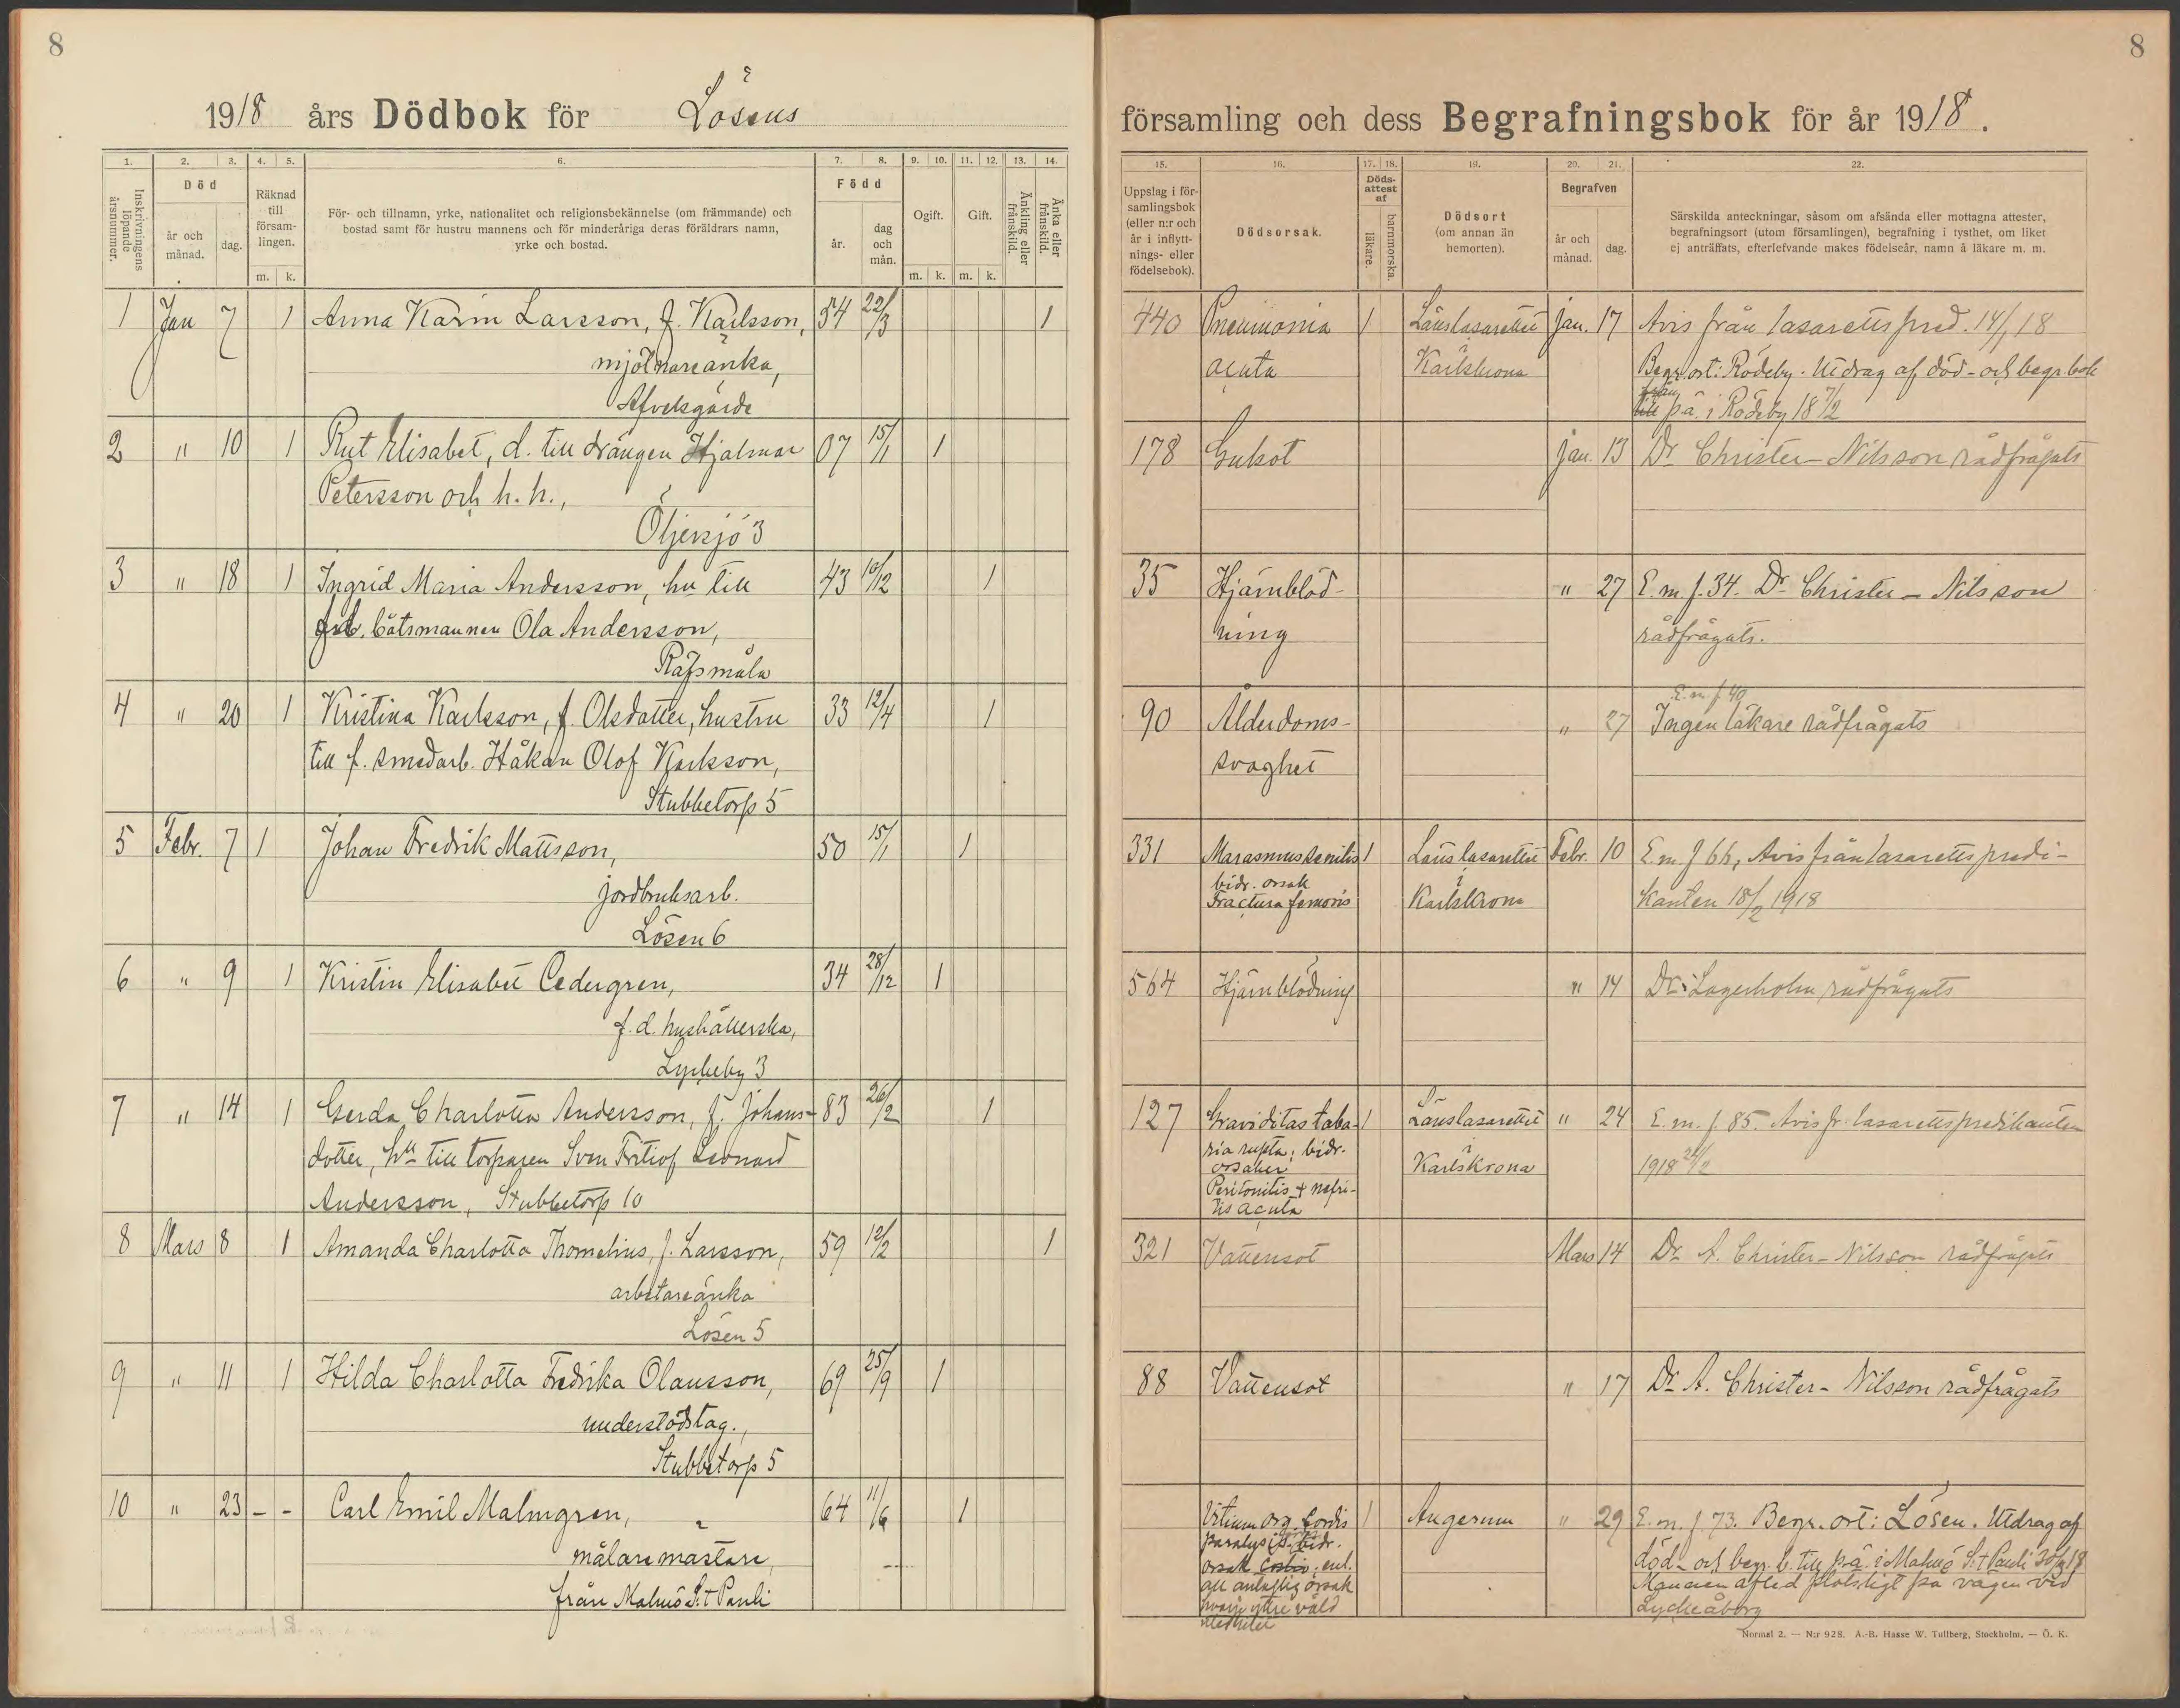 8
1918 års Dödbok för Lösens
1. 2. 3. 4. 5. 6. 7. 8. 9. 10. 11. 12. 13. 14.
Inskrivningens löpande årsnummer.
Död
år och månad.
dag.
Räknad till församlingen.
m. k.
För- och tillnamn, yrke, nationalitet och religionsbekännelse (om främmande) och
bostad samt för hustru mannens och för minderåriga deras föräldrars namn,
yrke och bostad.
Född
år.
dag och mån.
Ogift.
m. k.
Gift.
m. k.
Änkling eller frånskild.
Änka eller frånskild.
1 Jan 7 1 Anna Karin Larsson, f. Karlsson, 34 22/3 1
mjölnareänka,
Afvelsgärde
2 " 10 1 Rut Elisabet, d. till drängen Hjalmar 07 15/1 1
Petersson och h. h.,
Öljersjö 3
3 " 18 1 Ingrid Maria Andersson, hu till 43 10/12 1
båtsmannen Ola Andersson,
Räfsmåla
4 " 20 1 Kristina Karlsson, f. Olsdotter, hustru 33 12/4 1
till f. smedarb. Håkan Olof Karlsson,
Stubbetorp 5
5 Febr. 7 1 Johan Fredrik Mattsson, 50 15/1 1
jordbruksarb.
Lösen 6
6 " 9 1 Kristin Elisabet Cedergren, 34 28/12 1
f. d. hushållerska,
Lyckeby 3
7 " 14 1 Gerda Charlotta Andersson, f. Johans- 83 26/2 1
dotter, hu till torparen Sven Fritiof Leonard
Andersson, Stubbetorp 10
8 Mars 8 1 Amanda Charlotta Thomelius, f. Larsson, 59 12/2 1
arbetareänka
Lösen 5
9 " 11 1 Hilda Charlotta Fredrika Olausson, 69 25/9 1
understödstag.,
Stubbetorp 5
10 " 23 - - Carl Emil Malmgren, 64 11/6 1
målaremästare,
från Malmö S:t Pauli
8
församling och dess Begrafningsbok för år 1918.
15. 16. 17. 18. 19. 20. 21. 22.
Uppslag i församlingsbok (eller n:r och år i inflyttnings- eller födelsebok).
Dödsorsak.
Dödsattest af
läkare.
barnmorska.
Dödsort
(om annan än hemorten).
Begrafven
år och månad.
dag.
Särskilda anteckningar, såsom om afsända eller mottagna attester,
begrafningsort (utom församlingen), begrafning i tysthet, om liket
ej anträffats, efterlefvande makes födelseår, namn å läkare m. m.
440 Pneumonia 1 Länslasarettet jan. 17 Avis från lasarettspred. 14/1 18
acuta Karlskrona Begr.ort: Rödeby. Utdrag af död- och begr.bok
från
till på i Rödeby 18 7/2
178 Gulsot jan. 13 Dr Christer-Nilsson rådfrågats
35 Hjärnblöd- " 27 E. m. f. 34. Dr Christer-Nilsson
ning rådfrågats.
E. m. f. 40
90 Ålderdoms- " 27 Ingen läkare rådfrågats
svaghet
331 Marasmus senilis 1 Länslasarettet Febr. 10 E. m. f 66, Avis från lasarettspredi-
bidr. orsak i
Fractura femoris Karlskrona kanten 18/2 1918
564 Hjärnblödning " 14 Dr Lagerholm rådfrågats
127 Graviditas tuba- 1 Länslasarettet " 24 E. m. f. 85. Avis fr. lasarettspredikanten
ria rupta; bidr. i
orsaker Karlskrona 1918 21/2
Peritonitis + nefri-
tis acuta
321 Vattensot Mars 14 Dr A. Christer-Nilsson rådfrågats
88 Vattensot " 17 Dr A. Christer-Nilsson rådfrågats
Vitium org. cordis 1 Augerum " 29 E. m. f 73. Begr. ort: Lösen. Utdrag af
paralysis bidr. död- och begr. b. till på i Malmö S:t Pauli
orsak enl.
all antaglig orsak Mannen afled plötsligt på vägen vid
yttre våld Lyckåborg
Normal 2. — N:r 928. A.-B. Hasse W. Tullberg, Stockholm. — Ö. K.